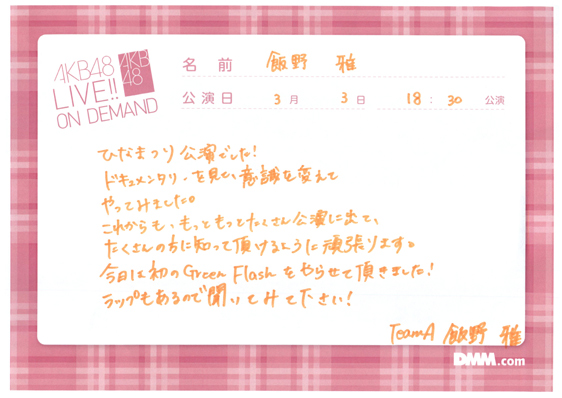 AKB48
LIVE!!
ON DEMAND
AKB
48
名 前 飯野 雅
公演日 3月 3日 18:30 公演
ひなまつり公演でした!
ドキュメンタリーを見て、意識を変えて
やってみました。
これからも、もっともっとたくさん公演に出て、
たくさんの方に知って頂けるように頑張ります。
今日は初のGreen Flashをやらせて頂きました!
ラップもあるので聞いてみて下さい!
TeamA 飯野 雅
DMM.com